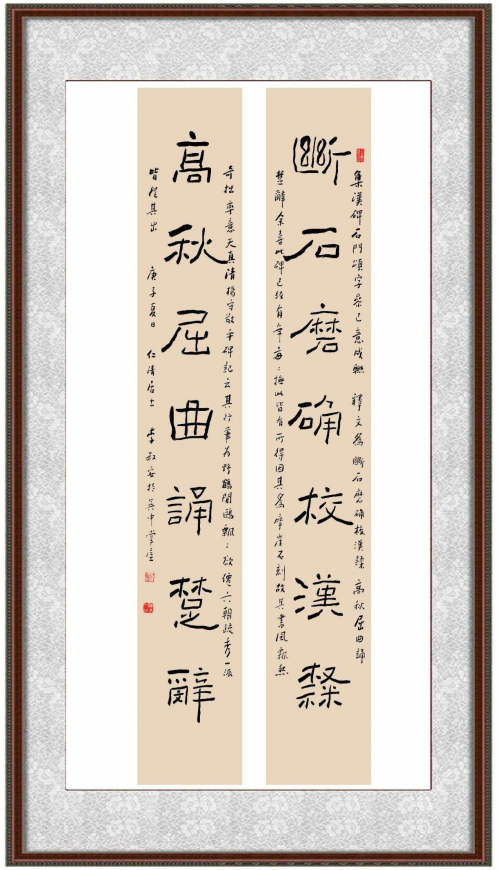 集漢碑石門頌字參己意成聯 釋文為 斷石磨确校漢隸 高秋屈曲誦
斷石磨确校漢隸
楚辭余喜此碑已經有年每々撫此皆有所得因其為摩崖石刻故其書風
奇拙率意天真清楊守敬平碑記云其行筆如野鶴閒鷗飄々欲僊六朝疏秀一派
高秋屈曲誦楚辭
皆從其出 庚子夏日 仁清居士 李叔安於吳中